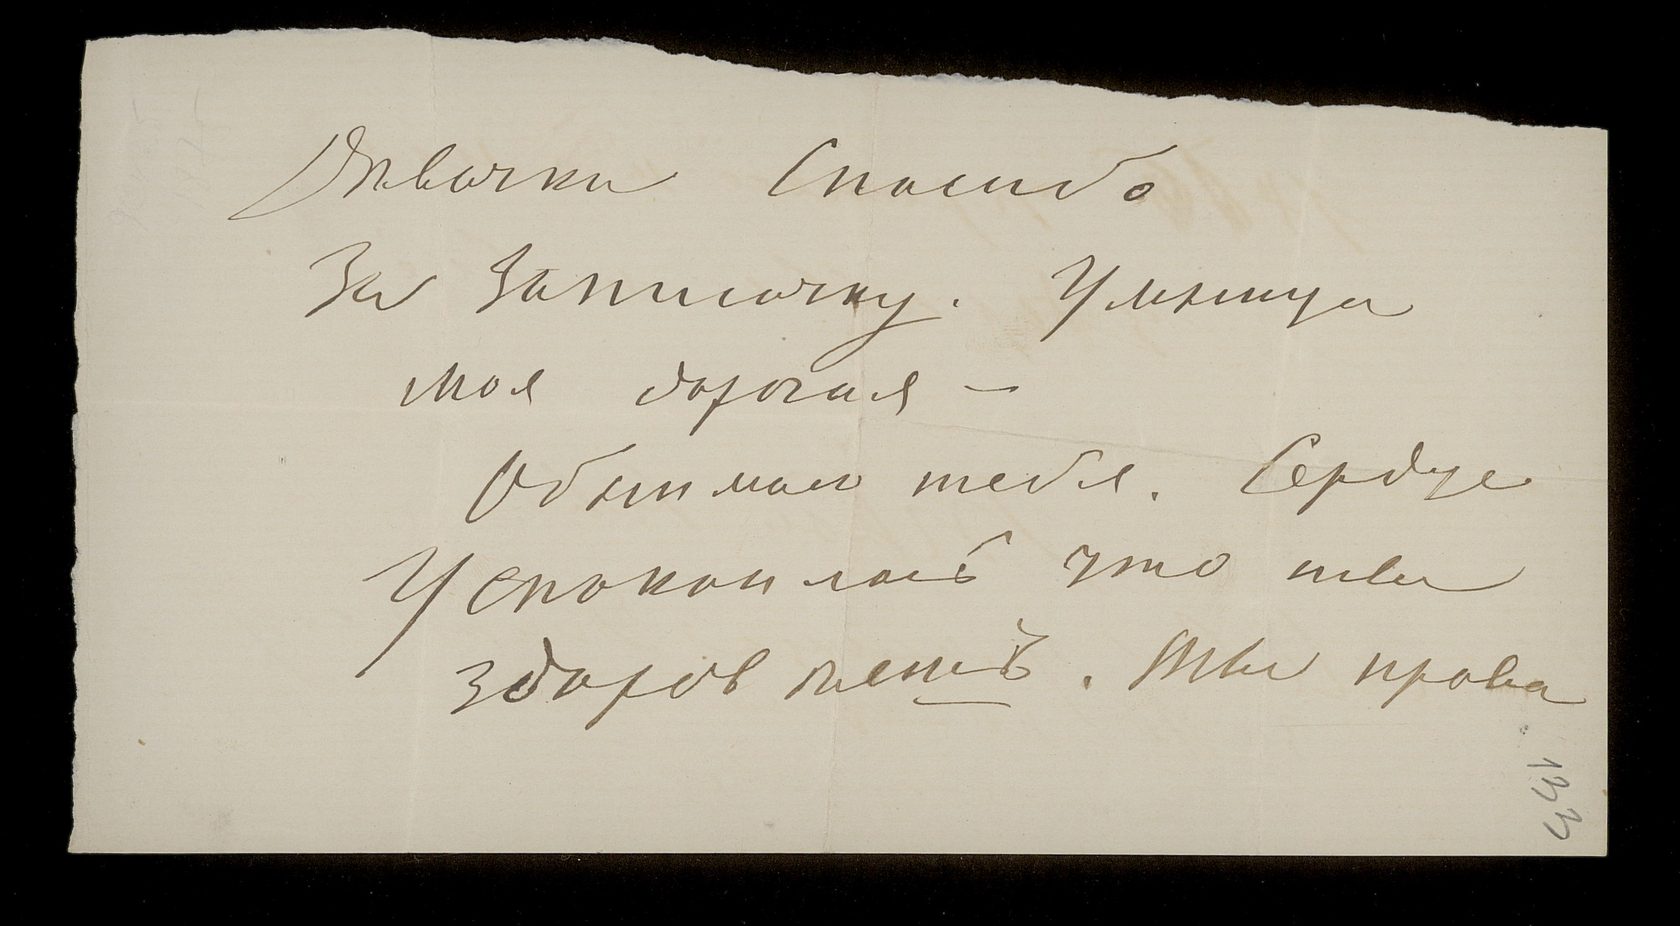 Дѣвочка Спасибо
За Записочку. Умница
моя дорогая —
Обнимаю тебя. Сердце
Успокоилось что ты
здоров
. Ты права
133